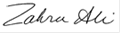 Zahra Ali